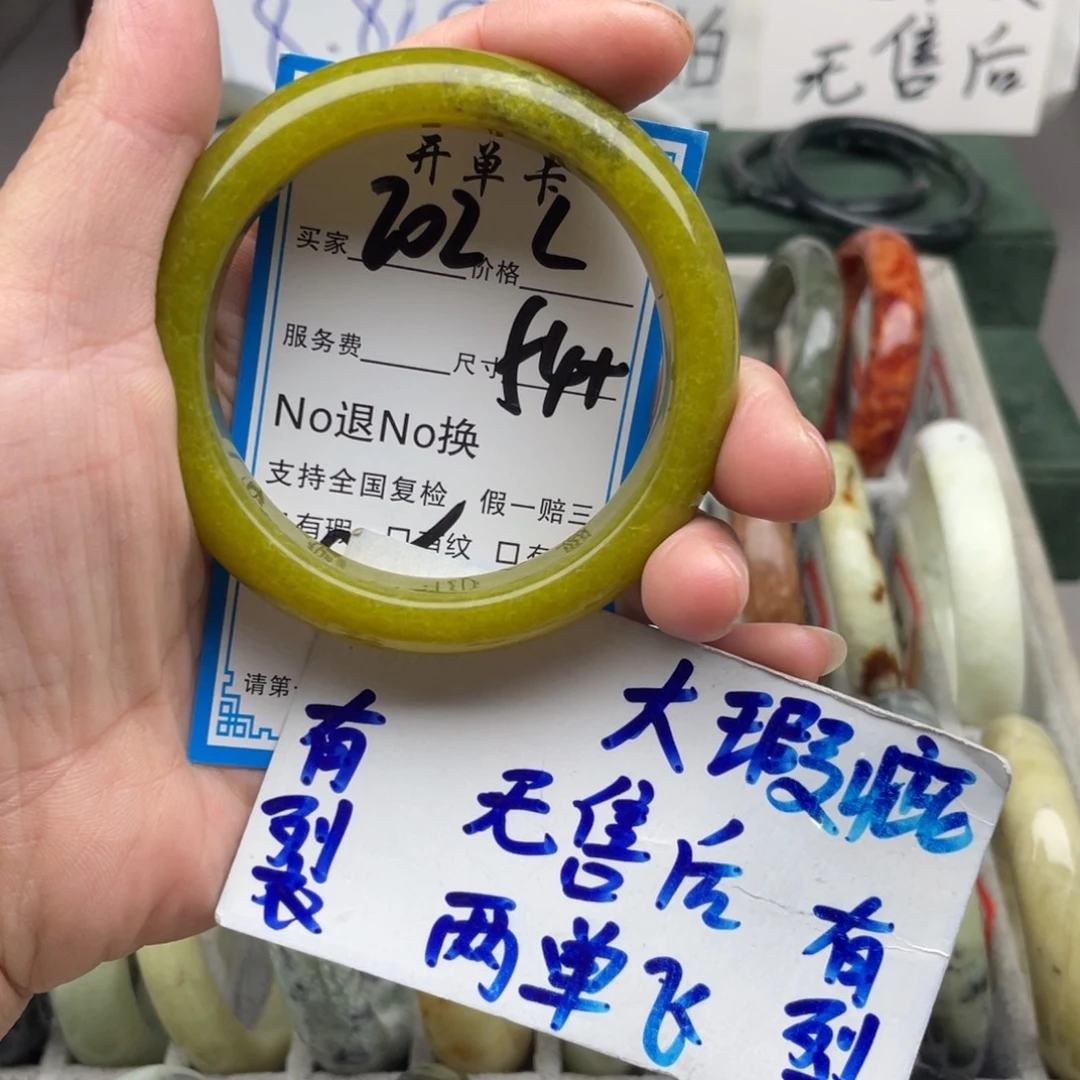 8.8
拍
无售后
开单卡
买家 202 价格 L
服务费 尺寸 54+
No退No换
支持全国复检 假一赔三
有瑕 口 纹 口有
请第一
有裂
大瑕疵
无售后
两单飞
有裂